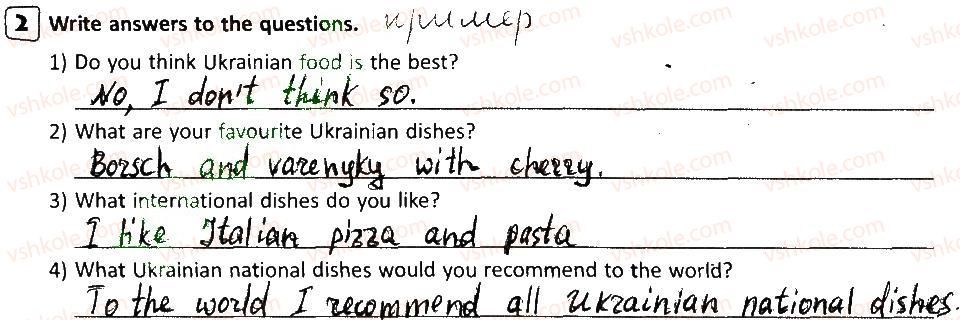 2 Write answers to the questions. пример
1) Do you think Ukrainian food is the best?
No, I don't think so.
2) What are your favourite Ukrainian dishes?
Borsch and varenyky with cherry.
3) What international dishes do you like?
I like Italian pizza and pasta
4) What Ukrainian national dishes would you recommend to the world?
To the world I recommend all Ukrainian national dishes.